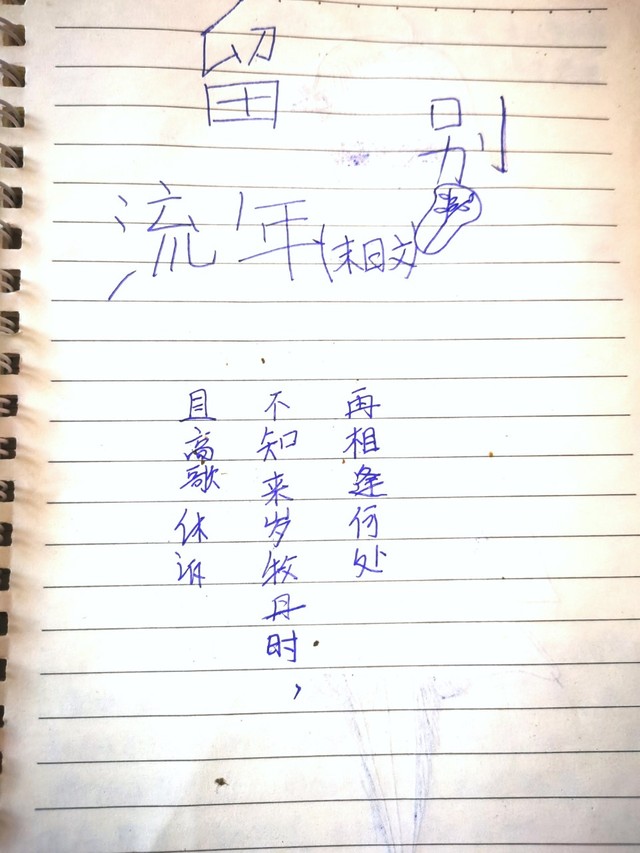 留别
流年(末日文)
且高歌休诉
不知来岁牧丹时，
再相逢何处